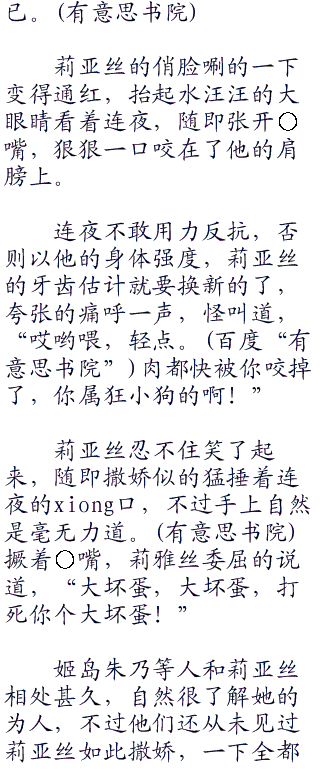 已。(有意思书院)
莉亚丝的俏脸唰的一下
变得通红，抬起水汪汪的大
眼睛看着连夜，随即张开○
嘴，狠狠一口咬在了他的肩
膀上。
连夜不敢用力反抗，否
则以他的身体强度，莉亚丝
的牙齿估计就要换新的了，
夸张的痛呼一声，怪叫道，
“哎哟喂，轻点。(百度“有
意思书院”)肉都快被你咬掉
了，你属狂小狗的啊！”
莉亚丝忍不住笑了起
来，随即撒娇似的猛捶着连
夜的xiong口，不过手上自然
是毫无力道。(有意思书院)
撅着○嘴，莉雅丝委屈的说
道，“大坏蛋，大坏蛋，打
死你个大坏蛋！”
姬岛朱乃等人和莉亚丝
相处甚久，自然很了解她的
为人，不过他们还从未见过
莉亚丝如此撒娇，一下全都